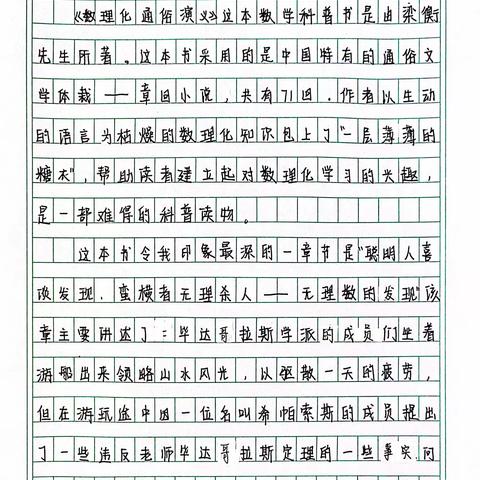 《数理化通俗演义》这本数学科普书是由梁衡
先生所著。这本书采用的是中国特有的通俗文
学体裁——章回小说，共有71回。作者以生动
的语言为枯燥的数理化知识包上了“一层薄薄的
糖衣”，帮助读者建立起对数理化学习的兴趣，
是一部难得的科普读物。
这本书令我印象最深的一章节是“聪明人喜
谈发现，蛮横者无理杀人——无理数的发现”该
章主要讲述了：毕达哥拉斯学派的成员们坐着
游船出来领略山水风光，以驱散一天的疲劳，
但在游玩途中因一位名叫希帕索斯的成员提出
了一些违反老师毕达哥拉斯定理的一些事实问